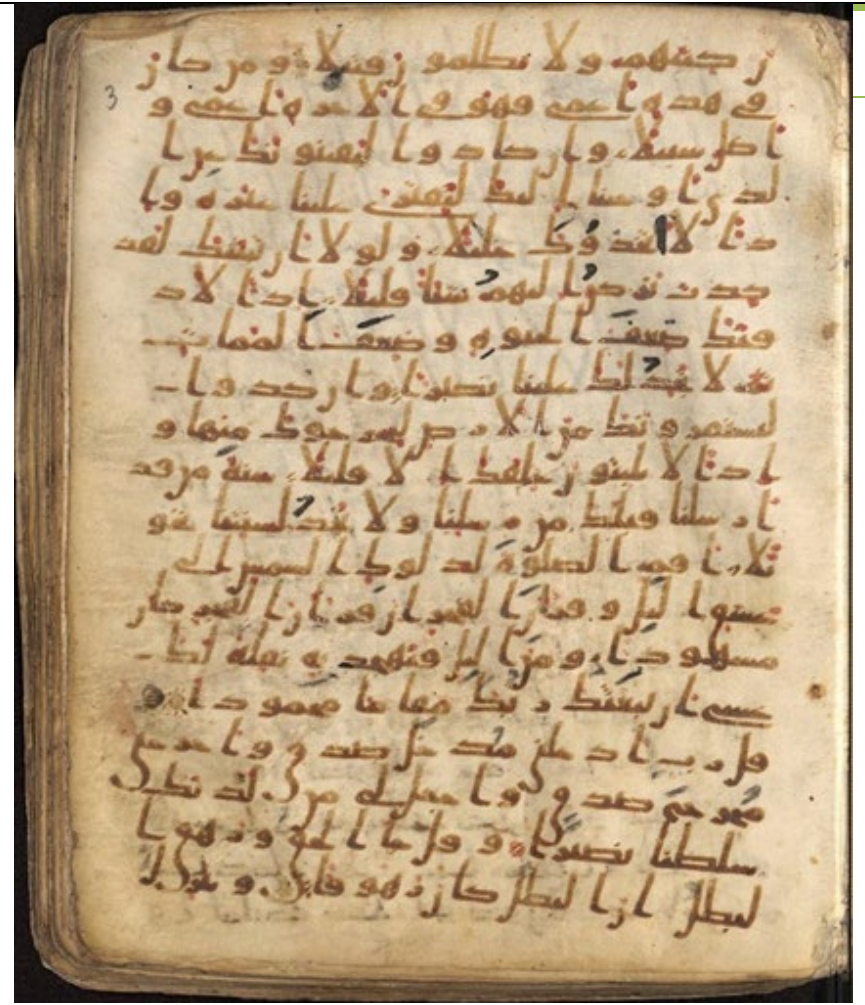 3
ن كتبهم ولا يظلمون فتيلا ومن كان
في هذه اعمى فهو في الاخرة اعمى و
اضل سبيلا وان كادوا ليفتنونك عن ا
لذي اوحينا اليك لتفتري علينا غيره وا
ذا لاتخذوك خليلا ولولا ان ثبتنك لقد
كدت تركن اليهم شيئا قليلا اذا لاذ
قنك ضعف الحيوة وضعف الممات
ثم لا تجد لك علينا نصيرا وان كادوا
ليستفزونك من الارض ليخرجوك منها و
اذا لا يلبثون خلفك الا قليلا سنة من قد
ارسلنا قبلك من رسلنا ولا تجد لسنتنا تحو
يلا اقم الصلوة لدلوك الشمس الى
غسق اليل وقران الفجر ان قران الفجر كان
مشهودا ومن اليل فتهجد به نفلة لك
عسى ان يبعثك ربك مقاما محمودا و
قل رب ادخلني مدخل صدق واخرجني
مخرج صدق واجعل لي من لدنك
سلطنا نصيرا وقل جا الحق وزهق ا
لبطل ان البطل كان زهوقا وننزل